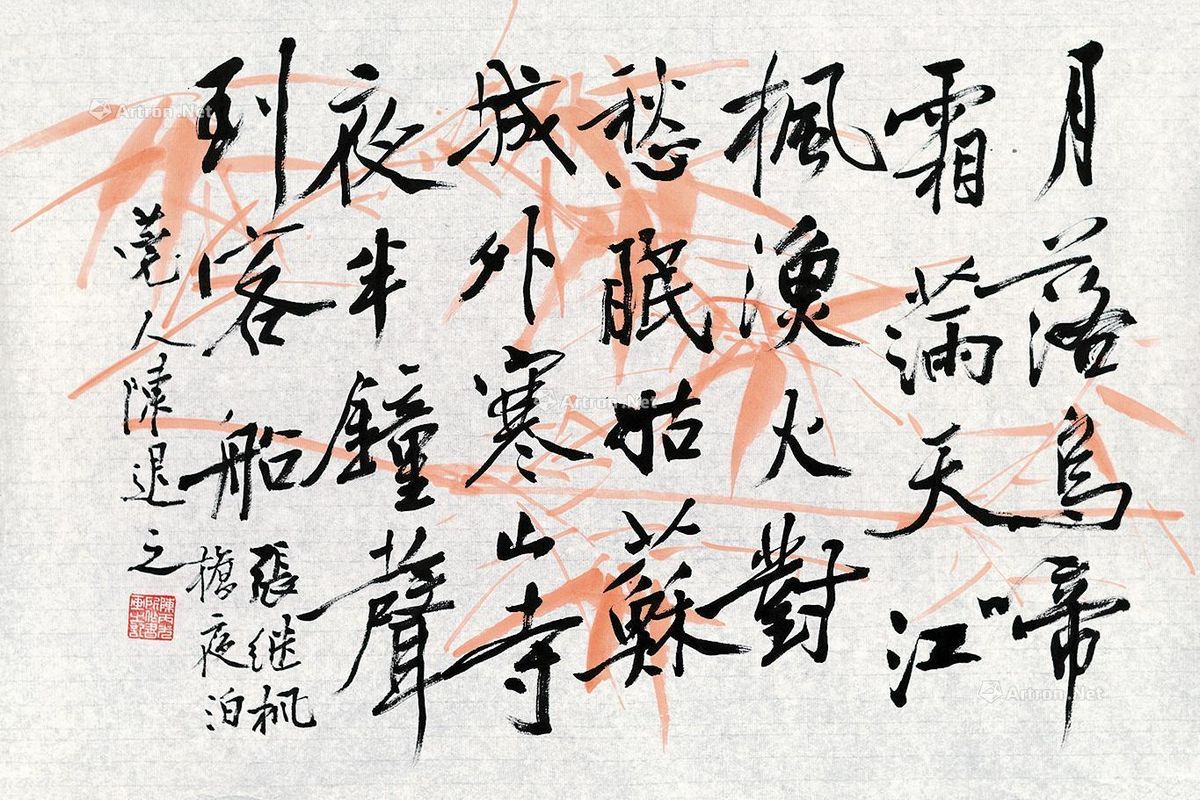 月落烏啼
霜滿天江
楓漁火對
愁眠姑蘇
城外寒山寺
夜半鐘聲
到客船
張继枫
橋夜泊
莞人陳退之
Artron.Net
Artron.Net
Artron.Net